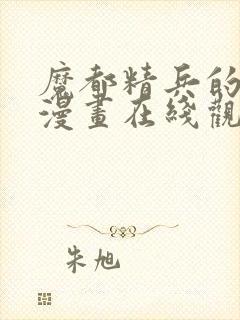 魔都精兵的
漫畫在綫觀
朱旭